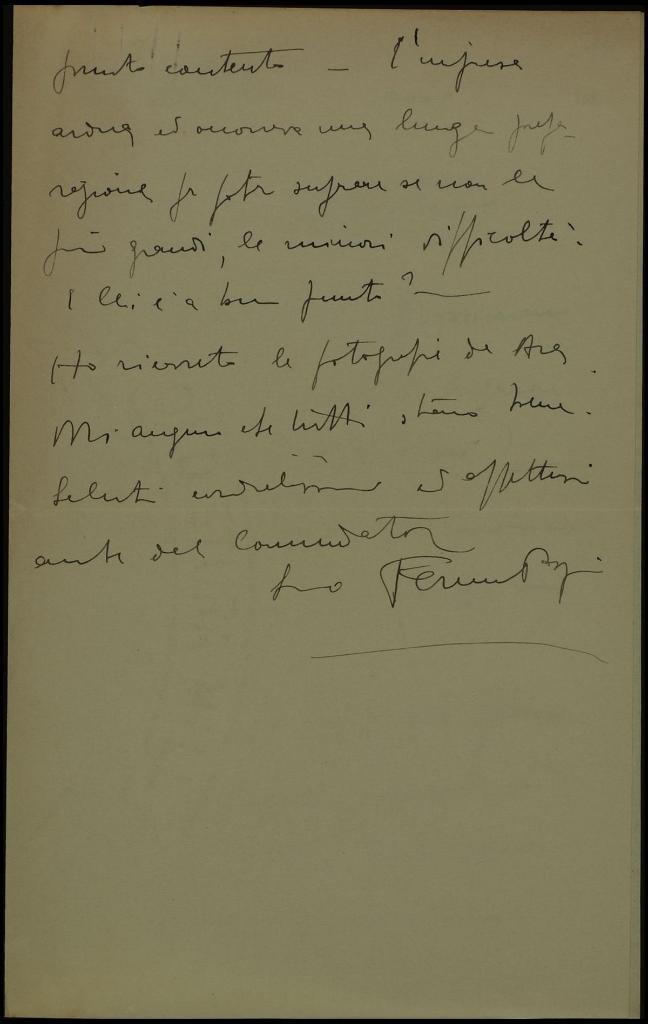 punto contento — l'impresa
ardua ed occorreva una lunga prepa-
razione per poter superare se non le
più grandi, le minori difficoltà.
Lei è a buon punto? —
Ho ricevuto le fotografie da
Mi auguro che tutti stiano bene.
Saluti cordialissimi ed affettuosi
anche del Commendator
Suo